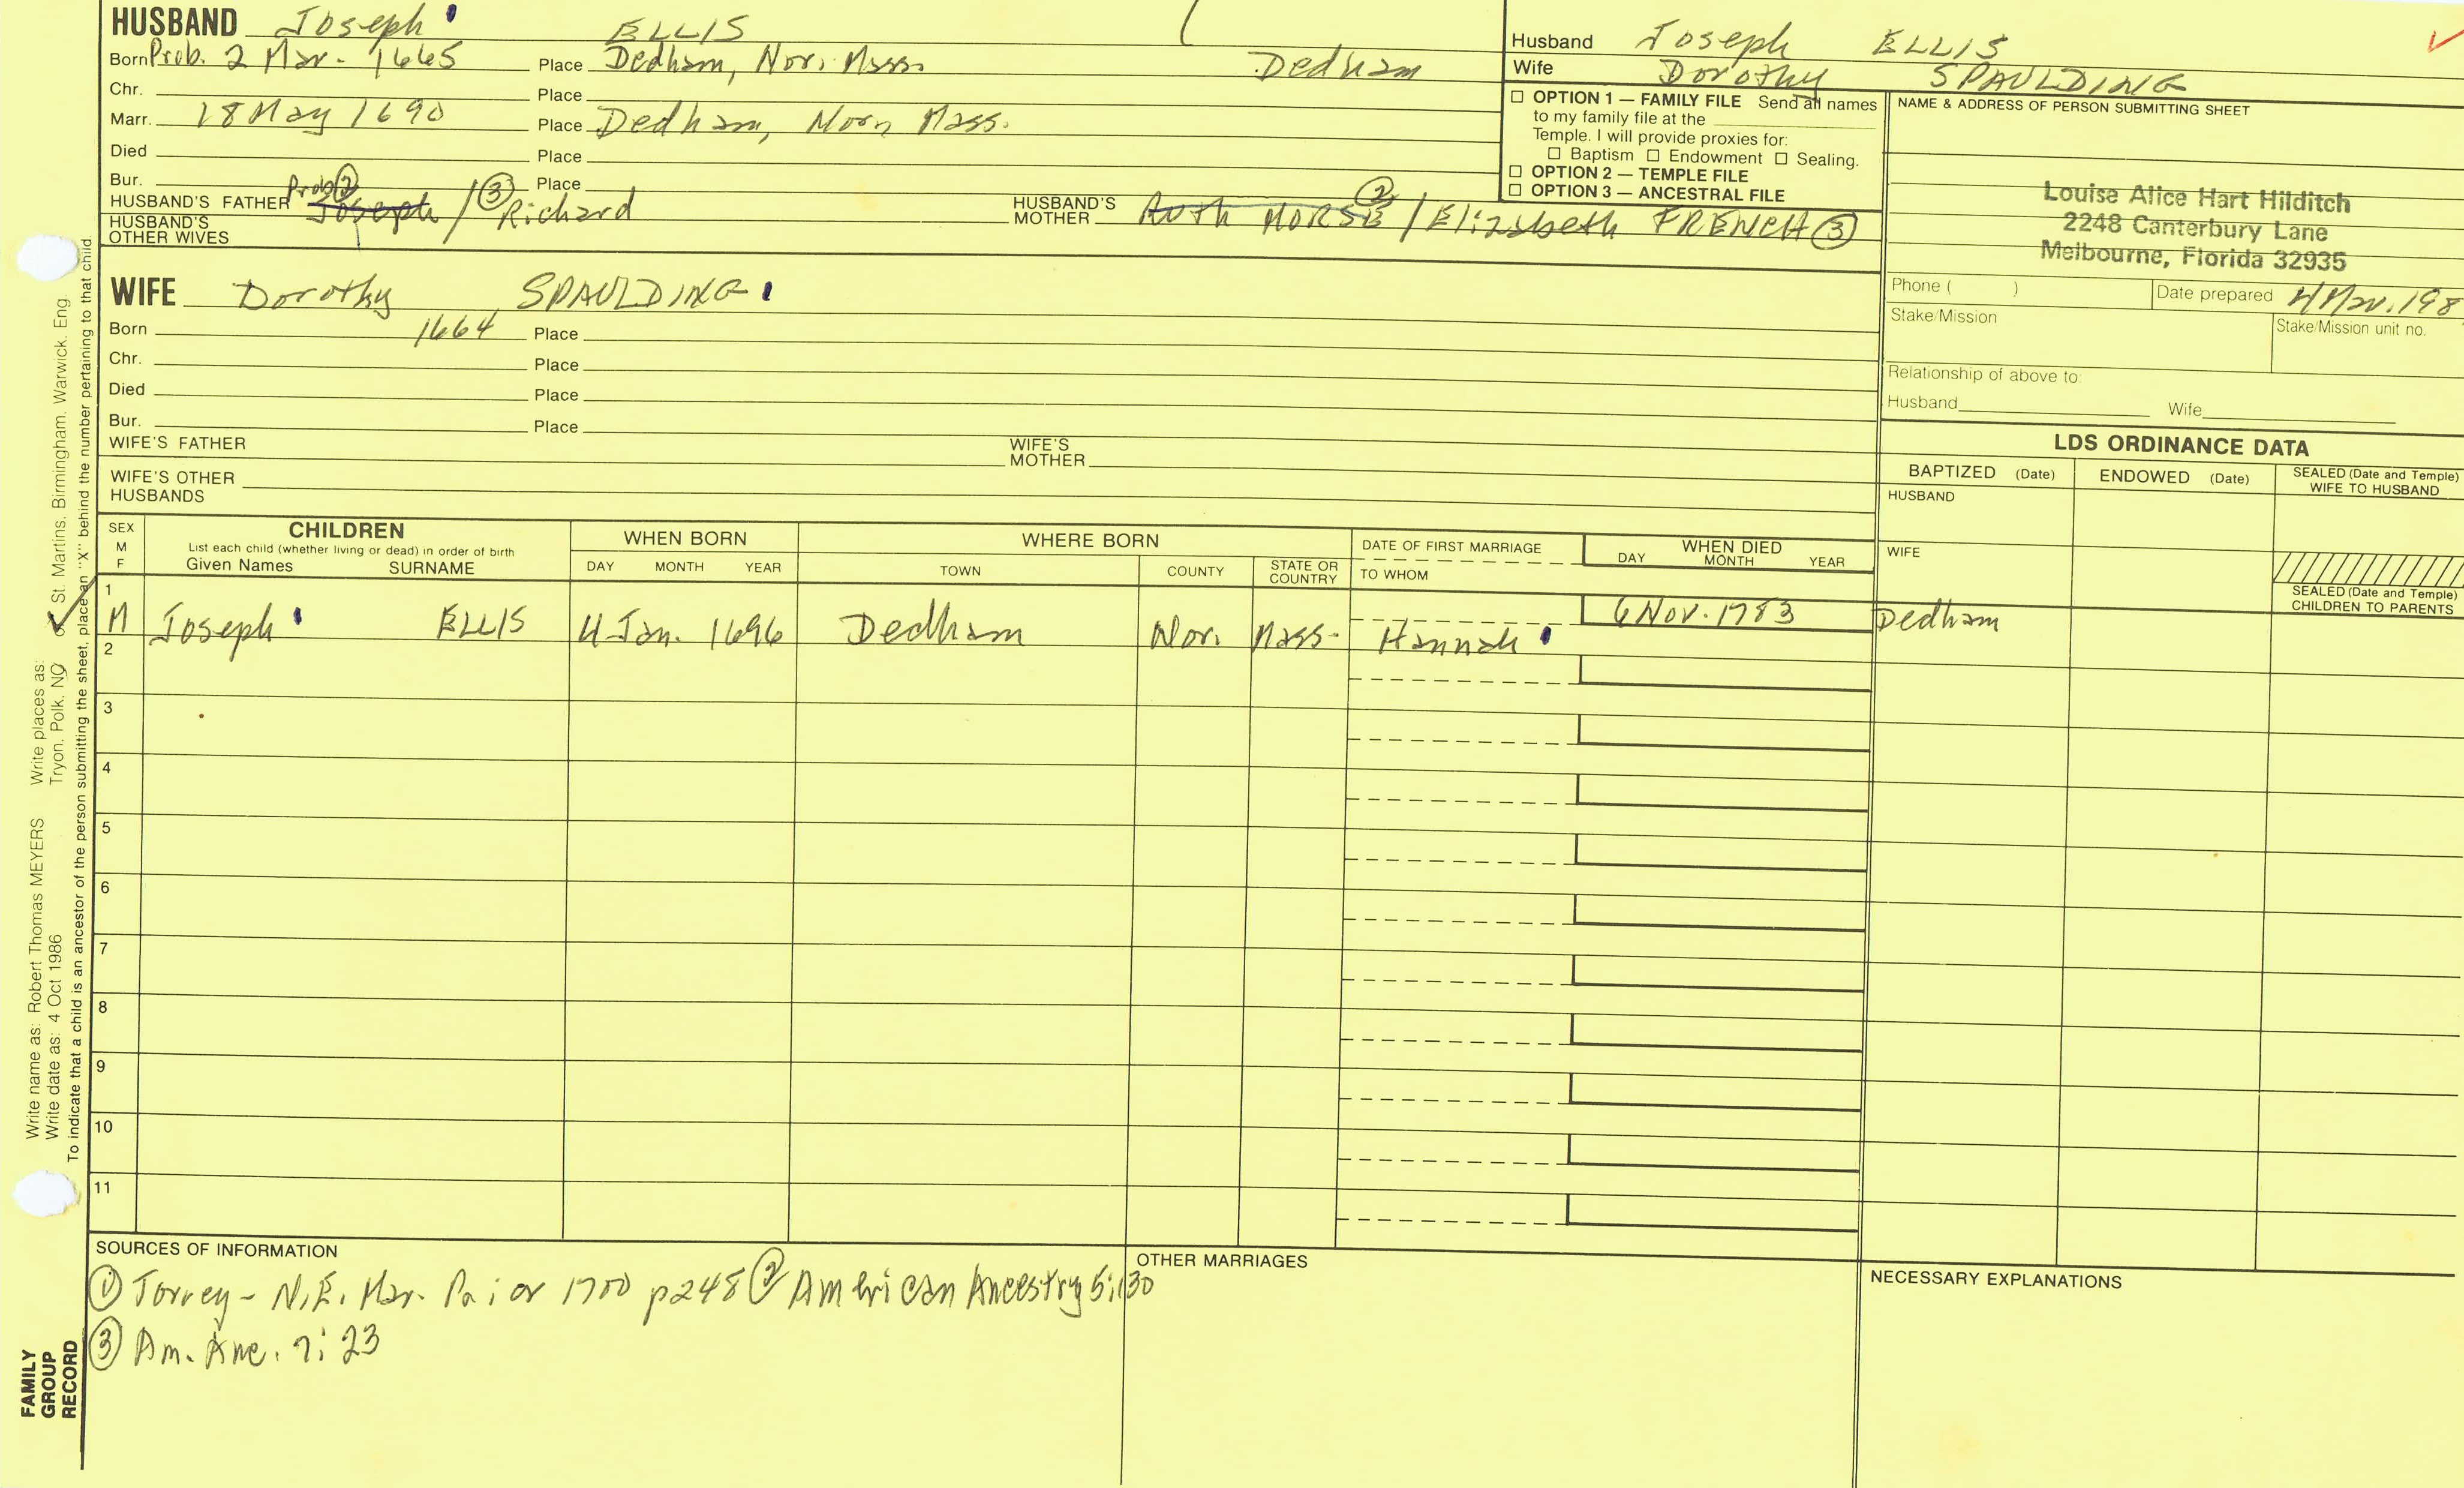 HUSBAND Joseph ELLIS
Born Prob. 2 Mar. 1665 Place Dedham, Nor. Mass. Dedham
Chr. Place
Marr. 18 May 1690 Place Dedham, Norn Mass.
Died Place
Bur. Place
HUSBAND'S FATHER Prob ② Joseph / ③ Richard HUSBAND'S MOTHER Ruth MORSE ② / Elizabeth FRENCH ③
HUSBAND'S OTHER WIVES
Husband Joseph ELLIS
Wife Dorothy SPAULDING
☐ OPTION 1 — FAMILY FILE Send all names
to my family file at the
Temple. I will provide proxies for:
☐ Baptism ☐ Endowment ☐ Sealing.
☐ OPTION 2 — TEMPLE FILE
☐ OPTION 3 — ANCESTRAL FILE
NAME & ADDRESS OF PERSON SUBMITTING SHEET
Louise Alice Hart Hilditch
2248 Canterbury Lane
Melbourne, Florida 32935
Phone ( ) Date prepared 4 Mar. 198
Stake/Mission Stake/Mission unit no.
Relationship of above to:
Husband Wife
WIFE Dorothy SPAULDING
Born 1664 Place
Chr. Place
Died Place
Bur. Place
WIFE'S FATHER WIFE'S MOTHER
WIFE'S OTHER HUSBANDS
LDS ORDINANCE DATA
BAPTIZED (Date) ENDOWED (Date) SEALED (Date and Temple) WIFE TO HUSBAND
HUSBAND
WIFE
SEALED (Date and Temple) CHILDREN TO PARENTS
SEX M F
CHILDREN
List each child (whether living or dead) in order of birth
Given Names SURNAME
WHEN BORN
DAY MONTH YEAR
WHERE BORN
TOWN COUNTY STATE OR COUNTRY
DATE OF FIRST MARRIAGE
TO WHOM
WHEN DIED
DAY MONTH YEAR
1 M Joseph ELLIS 4 Jan. 1696 Dedham Nor. Mass. Hannah 6 Nov. 1783 Dedham
2
3
4
5
6
7
8
9
10
11
SOURCES OF INFORMATION
① Torrey - N.E. Mar. Prior 1700 p248 ② American Ancestry 5:130
③ Am. Anc. 7:23
OTHER MARRIAGES
NECESSARY EXPLANATIONS
Write name as: Robert Thomas MEYERS Write places as:
Write date as: 4 Oct 1986 Tryon, Polk, NC St. Martins, Birmingham, Warwick, Eng.
To indicate that a child is an ancestor of the person submitting the sheet, place an "X" behind the number pertaining to that child.
FAMILY
GROUP
RECORD